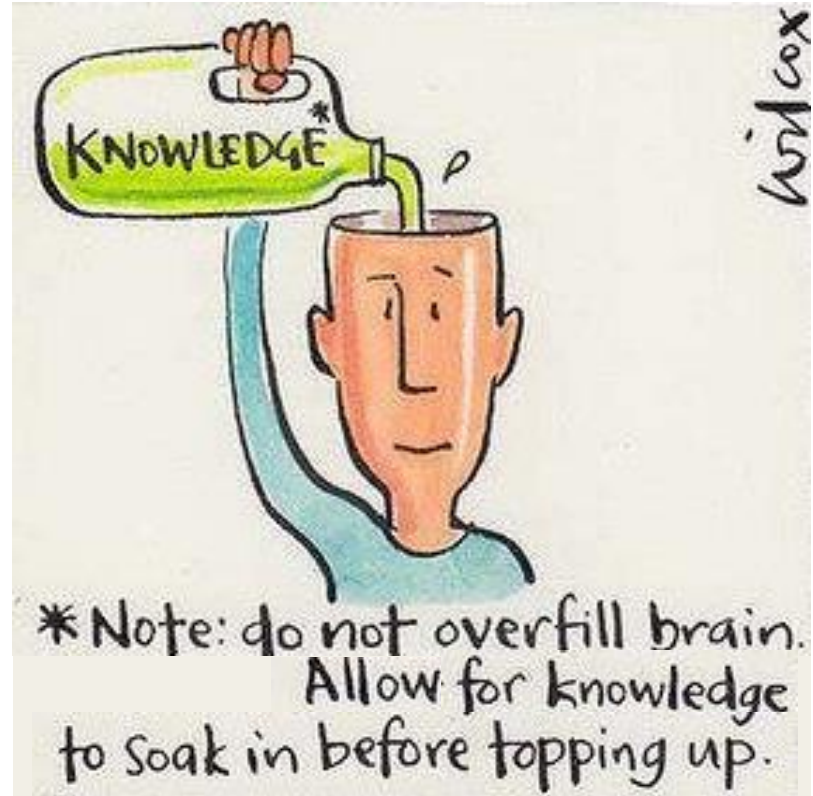 KNOWLEDGE*
wilcox
*Note: do not overfill brain.
Allow for knowledge
to soak in before topping up.